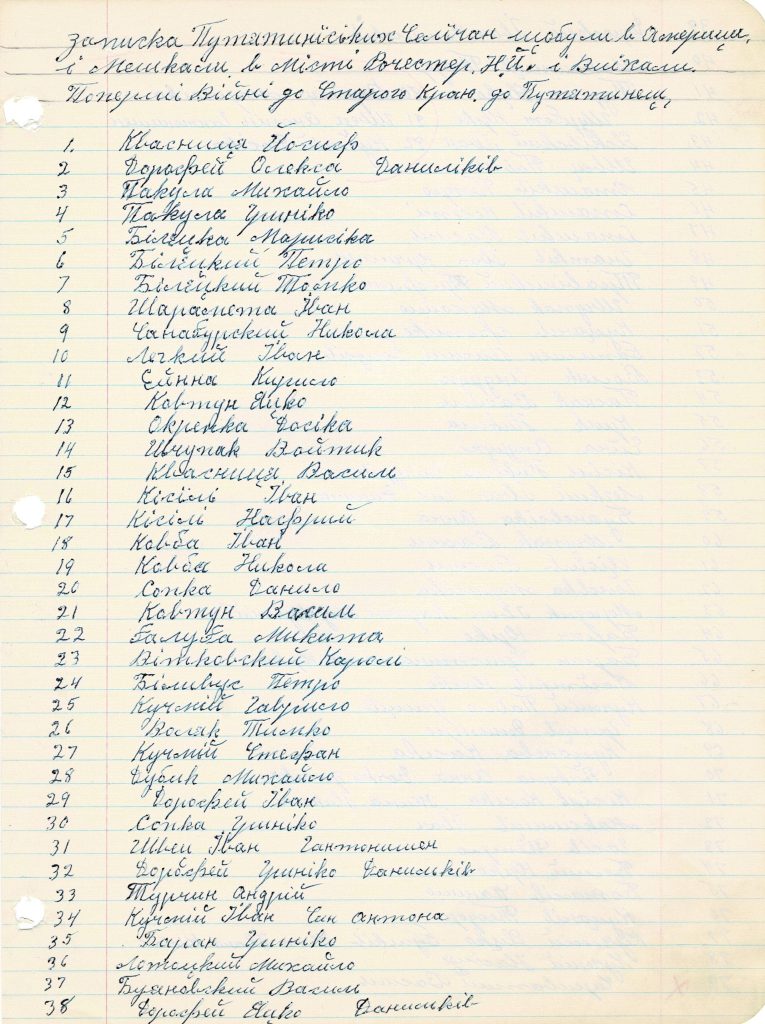 Записка Путятинїських Селїчан шобули в Америци,
і Мешкали, в Місті Рочестер, Н,Й, і Виїхали.
Поперші Війні до Старого Краю, до Путятинец,
1. Квасниця Йосиф
2 Дорофей Олекса Данилїків
3 Пакула Михайло
4 Пакула Гриніко
5 Білецка Марисіка
6 Білецкий Петро
7 Білецкий Томко
8 Шарамета Іван
9 Чанабурский Никола
10 Легкий Іван
11 Ейнна Кирило
12 Ковтун Яйко
13 Окренка Досіка
14 Шчупак Войтик
15 Квасниця Василь
16 Кісілі Іван
17 Кісілі Насфрий
18 Ковба Іван
19 Ковба Никола
20 Сопка Данило
21 Ковтун Васим
22 Ґалуґа Микита
23 Вітковский Каролі
24 Біливус Петро
25 Кучмій Гаврило
26 Воляк Тимко
27 Кучмій Стефан
28 Дубик Михайло
29 Дорофей Іван
30 Сопка Гриніко
31 Швец Іван
32 Дорофей Гриніко Данилків
33 Турчин Андрій
34 Кучмій Іван Син Антона
35 Баран Гриніко
36 Лотоцкий Михайло
37 Буяновский Василь
38 Дорофей Яйко Данилків